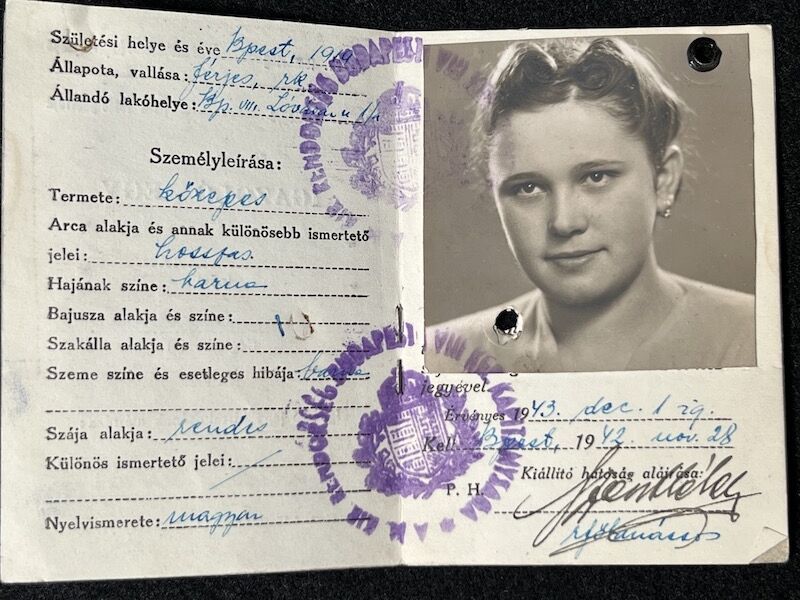 Születési helye és éve Bpest, 1919
Állapota, vallása: férjes, rk.
Állandó lakóhelye: Bp. VIII. Lóvásár u.
Személyleírása:
Termete: közepes
Arca alakja és annak különösebb ismertető
jelei: hosszas
Hajának színe: barna
Bajusza alakja és színe:
Szakálla alakja és színe:
Szeme színe és esetleges hibája: barna
Szája alakja: rendes
Különös ismertető jelei:
Nyelvismerete: magyar
jegyével.
Érvényes 1943. dec. 1 ig.
Kelt Bpest, 1942 nov. 28
Kiállító hatóság aláírása:
P. H.